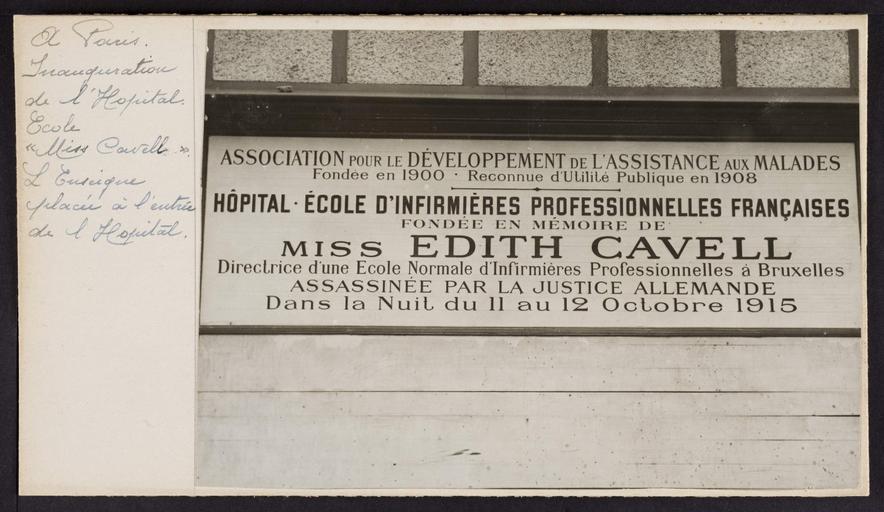 A Paris.
Inauguration
de l'Hopital.
Ecole
"Miss Cavell".
L'Enseigne
placée à l'entrée
de l'Hopital.
ASSOCIATION POUR LE DÉVELOPPEMENT DE L'ASSISTANCE AUX MALADES
Fondée en 1900 · Reconnue d'Utilité Publique en 1908
HÔPITAL · ÉCOLE D'INFIRMIÈRES PROFESSIONNELLES FRANÇAISES
FONDÉE EN MÉMOIRE DE
MISS EDITH CAVELL
Directrice d'une Ecole Normale d'Infirmières Professionnelles à Bruxelles
ASSASSINÉE PAR LA JUSTICE ALLEMANDE
Dans la Nuit du 11 au 12 Octobre 1915